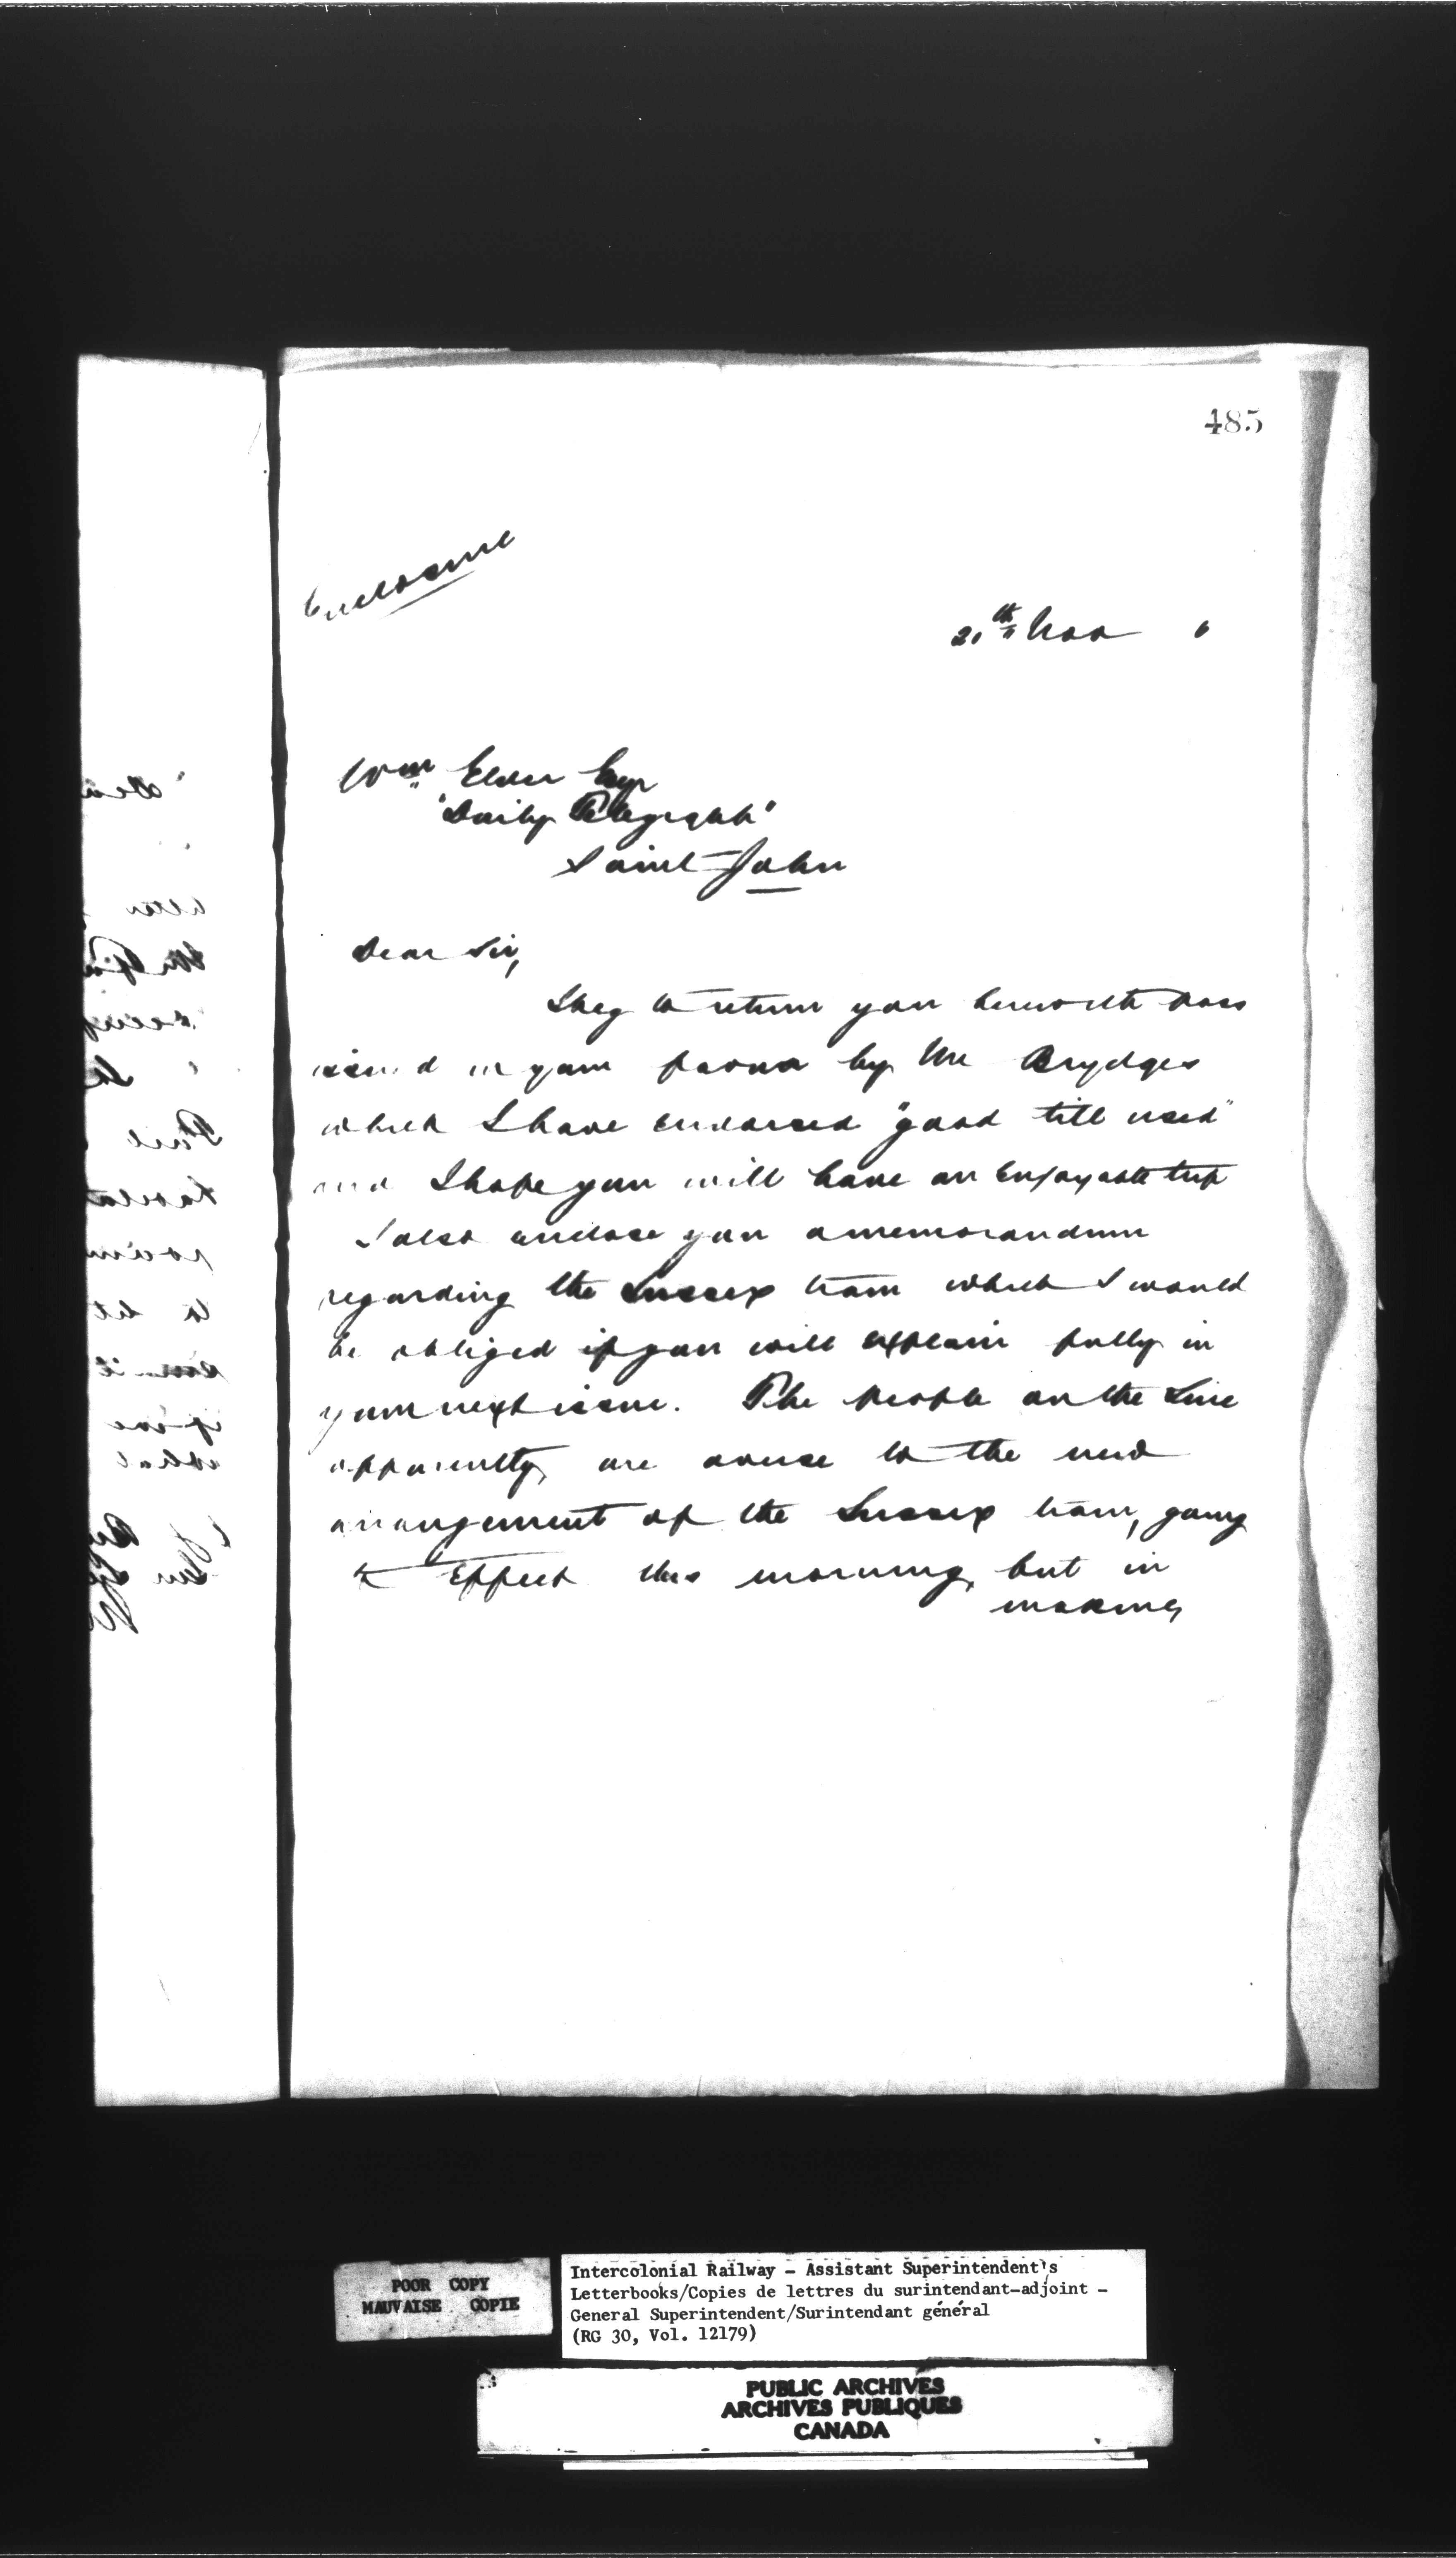 485
Enclosure
20th Nov 6
Wm Elder Esqr
"Daily Telegraph"
Saint John
Dear Sir,
I beg to return you herewith pass
issued in your favour by Mr Brydges
which I have endorsed "good till used"
and I hope you will have an enjoyable trip
I also enclose you a memorandum
regarding the Sussex train which I would
be obliged if you will explain fully in
your next issue. The people on the Line
apparently are averse to the new
arrangement of the Sussex train, going
to Effect this morning, but in
making
POOR COPY
MAUVAISE COPIE
Intercolonial Railway - Assistant Superintendent's
Letterbooks/Copies de lettres du surintendant-adjoint -
General Superintendent/Surintendant général
(RG 30, Vol. 12179)
PUBLIC ARCHIVES
ARCHIVES PUBLIQUES
CANADA